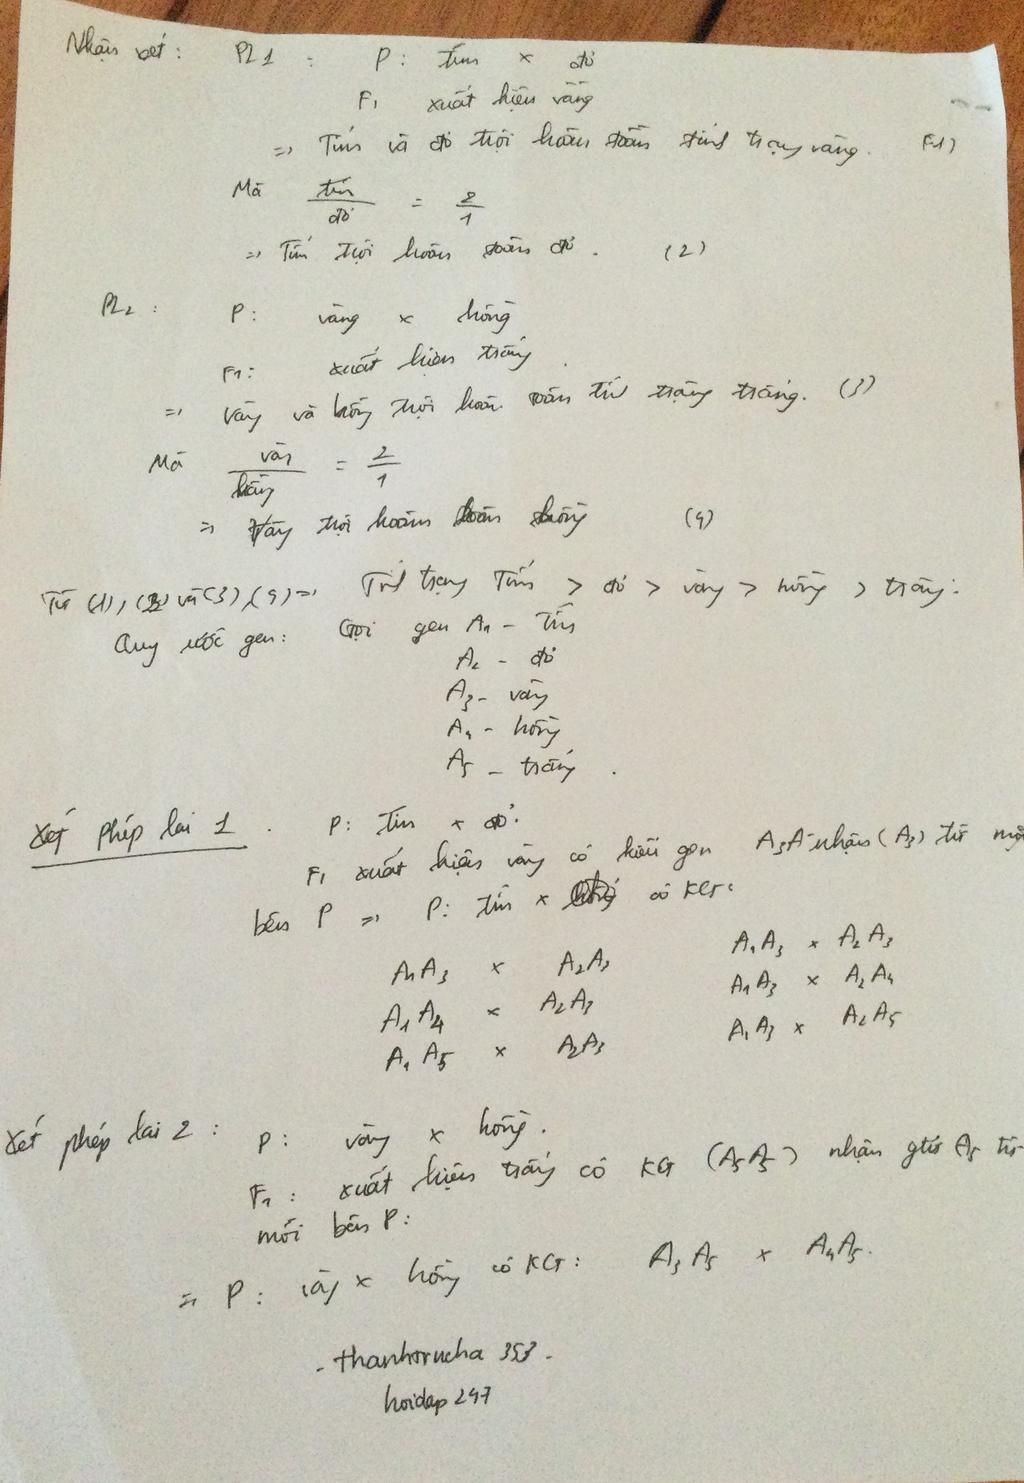 Nhận xét: PL1: P: tím x đỏ
F1 xuất hiện vàng
=> Tím và đỏ trội hoàn toàn tính trạng vàng. (1)
Mà tím/đỏ = 2/1
=> Tím trội hoàn toàn đỏ. (2)
PL2: P: vàng x hồng
F1: xuất hiện trắng.
=> vàng và hồng trội hoàn toàn tính trạng trắng. (3)
Mà vàng/hồng = 2/1
=> Vàng trội hoàn toàn hồng (4)
Từ (1), (2) và (3), (4) => Tính trạng Tím > đỏ > vàng > hồng > trắng.
Quy ước gen: Gọi gen A1 - Tím
A2 - đỏ
A3 - vàng
A4 - hồng
A5 - trắng.
Xét phép lai 1. P: Tím x đỏ.
F1 xuất hiện vàng có kiểu gen A3A- nhận (A3) từ một
bên P => P: tím x có KG:
A1A3 x A2A3 A1A3 x A2A3
A1A4 x A2A3 A1A3 x A2A4
A1A5 x A2A3 A1A3 x A2A5
Xét phép lai 2: P: vàng x hồng.
F1: xuất hiện trắng có KG (A5A5) nhận gtử A5 từ
mỗi bên P:
=> P: vàng x hồng có KG: A3A5 x A4A5.
- thanhtrucha 353 -
hoidap 247